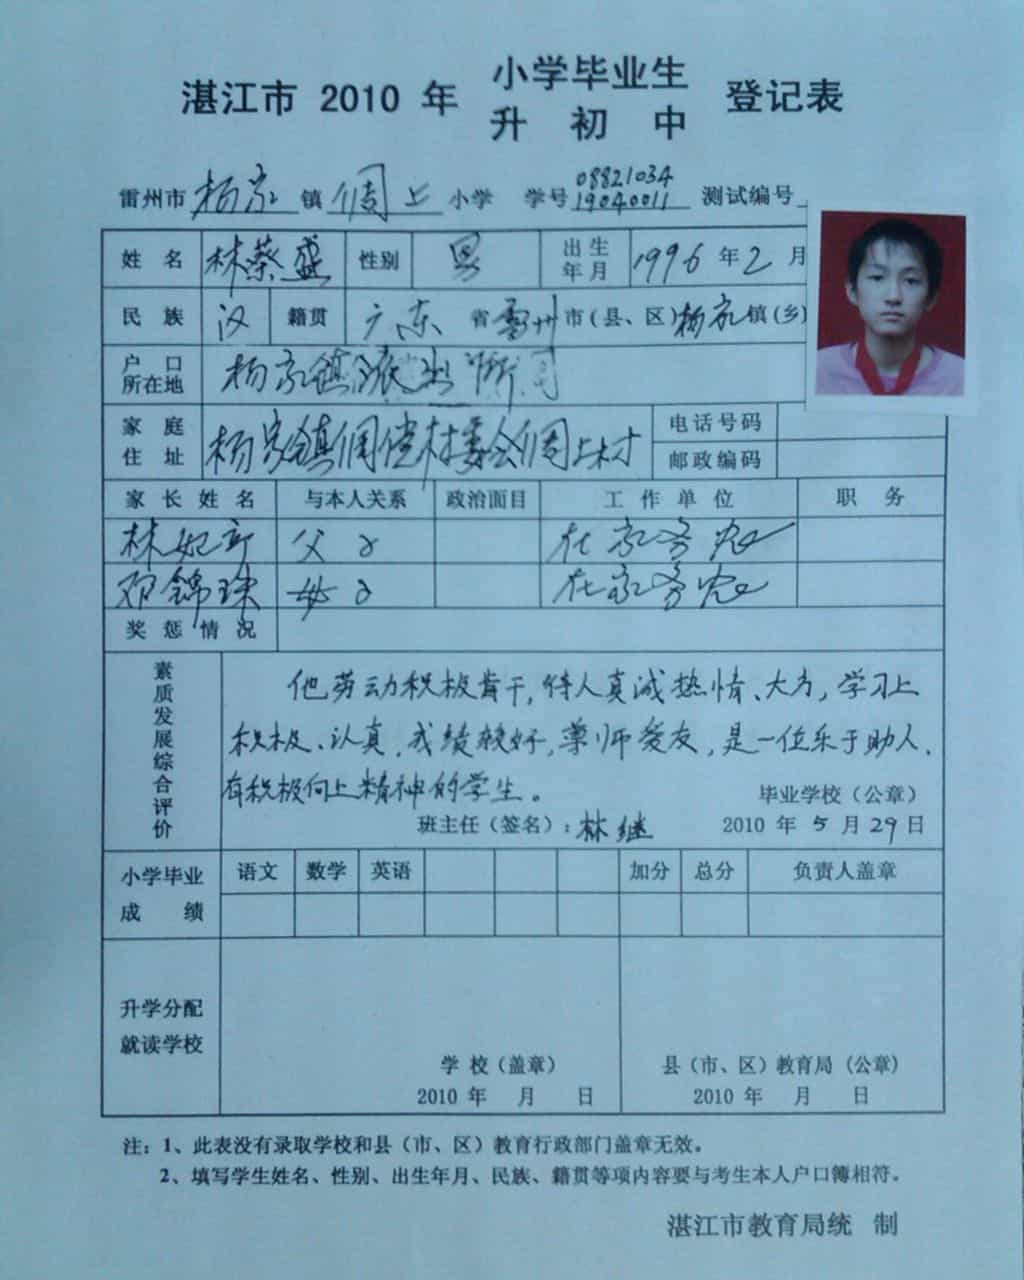 湛江市 2010 年 小学毕业生 登记表
升 初 中
08821034
雷州市 杨家 镇 倜上 小学 学号 19040011 测试编号
姓 名 林蔡盛 性别 男 出生年月 1996 年 2 月
民 族 汉 籍贯 广东 省 雷州 市(县、区) 杨家 镇(乡)
户 口 所在地 杨家镇派出所
家 庭 住 址 杨家镇 村委会倜上村 电话号码
邮政编码
家 长 姓 名 与本人关系 政治面目 工 作 单 位 职 务
林 父子 在家务农
邓锦珠 母子 在家务农
奖 惩 情 况
素质发展综合评价
他劳动积极肯干,待人真诚热情、大方,学习上
积极、认真,成绩较好,尊师爱友,是一位乐于助人,
有积极向上精神的学生。
毕业学校(公章)
班主任(签名):林继 2010 年 5 月 29 日
小学毕业成 绩 语文 数学 英语 加分 总分 负责人盖章
升学分配
就读学校
学 校(盖章) 县(市、区)教育局(公章)
2010 年 月 日 2010 年 月 日
注:1、此表没有录取学校和县(市、区)教育行政部门盖章无效。
2、填写学生姓名、性别、出生年月、民族、籍贯等项内容要与考生本人户口簿相符。
湛江市教育局统 制